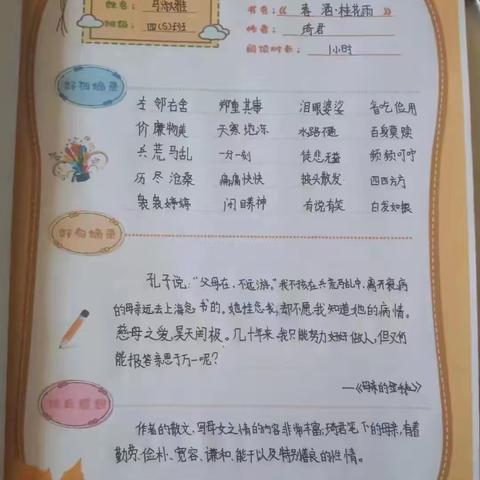 姓名: 马淑雅
书名:《春酒·桂花雨》
班级: 四(5)班
作者: 琦君
阅读时长: 1小时
好词摘录
左邻右舍 郑重其事 泪眼婆娑 省吃俭用
价廉物美 天寒地冻 水路不通 百身莫赎
兵荒马乱 一分一刻 徒悲无益 频频叮咛
历尽沧桑 痛痛快快 披头散发 四四方方
袅袅婷婷 闭目养神 有说有笑 白发如银
好句摘录
孔子说:“父母在,不远游。”我不该在兵荒马乱中,离开衰病
的母亲远去上海念书的。她怕念我,都不愿我知道她的病情。
慈母之爱,昊天罔极。几十年来,我只能努力好好做人,但又何
能报答亲恩于万一呢?
——《母亲的金手表》
读后感想
作者的散文,写母女之情的内容非常丰富,琦君笔下的母亲,有着
勤劳、俭朴、宽容、谦和、能干以及特别善良的性情。